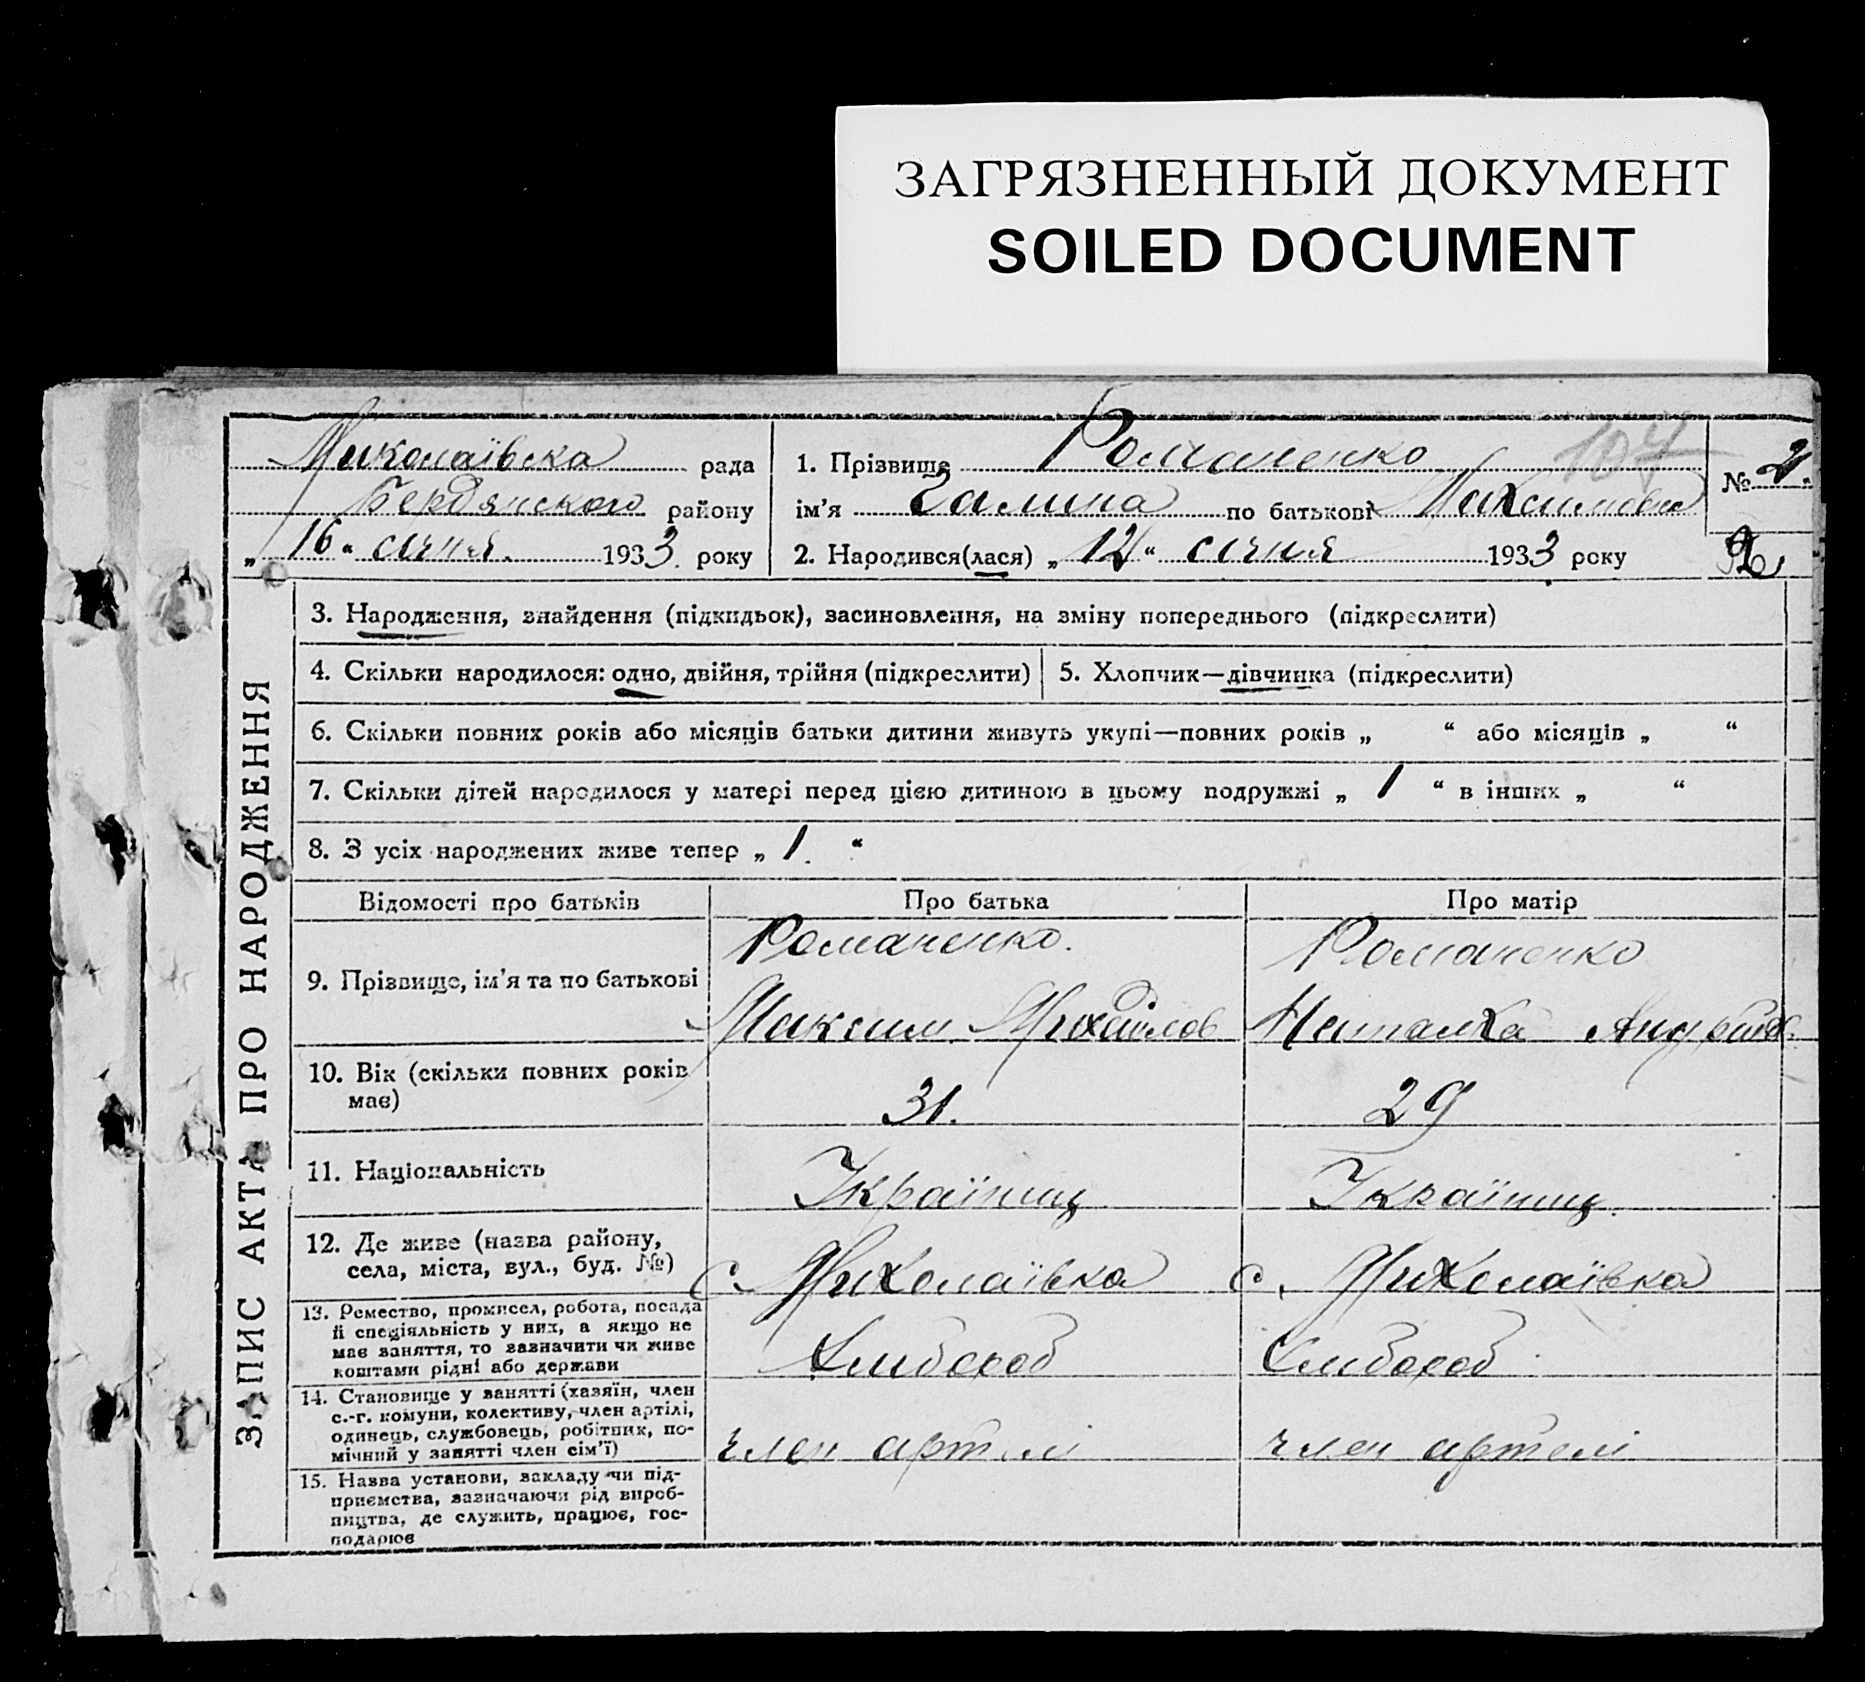 ЗАГРЯЗНЕННЫЙ ДОКУМЕНТ
SOILED DOCUMENT
Миколаївська рада
Бердянского району
„ 16 “ січня. 1933. року
1. Прізвище Романенко 107
ім'я Галина по батькові Максимовна
2. Народився(лася) „ 12 “ січня 1933 року
№ 2.
ЗАПИС АКТА ПРО НАРОДЖЕННЯ
3. Народження, знайдення (підкидьок), засиновлення, на зміну попереднього (підкреслити)
4. Скільки народилося: одно, двійня, трійня (підкреслити)
5. Хлопчик—дівчинка (підкреслити)
6. Скільки повних років або місяців батьки дитини живуть укупі—повних років „ “ або місяців „ “
7. Скільки дітей народилося у матері перед цією дитиною в цьому подружжі „ 1 “ в інших „ “
8. З усіх народжених живе тепер „ 1. “
Відомості про батьків
Про батька
Про матір
9. Прізвище, ім'я та по батькові
Романенко.
Максим Михайлов
Романенко
Наталка Андріїв.
10. Вік (скільки повних років
має)
31.
29
11. Національність
Українц
Українц.
12. Де живе (назва району,
села, міста, вул., буд. №)
с. Миколаївка
с. Миколаївка
13. Ремество, промисел, робота, посада
й спеціяльність у них, а якщо не
має заняття, то зазначити чи живе
коштами рідні або держави
Хлибороб
Хлибороб
14. Становище у занятті (хазяїн, член
с.-г. комуни, колективу, член артілі,
одинець, службовець, робітник, по-
мічний у занятті член сім'ї)
член артелі
член артелі
15. Назва установи, закладу чи під-
приємства, зазначаючи рід вироб-
ництва, де служить, працює, гос-
подарює